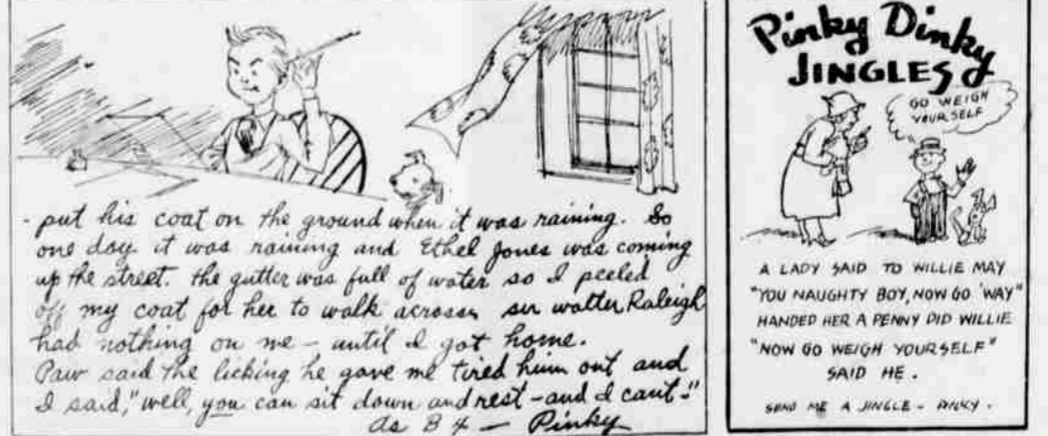 - put his coat on the ground when it was raining. So
one day it was raining and Ethel Jones was coming
up the street. the gutter was full of water so I peeled
off my coat for her to walk across. sir walter Raleigh
had nothing on me - until I got home.
Paw said the licking he gave me tired him out and
I said, "well, you can sit down and rest - and I can't -"
As B 4 - Pinky
Pinky Dinky
JINGLES
GO WEIGH
YOURSELF
A LADY SAID TO WILLIE MAY
"YOU NAUGHTY BOY, NOW GO 'WAY"
HANDED HER A PENNY DID WILLIE
"NOW GO WEIGH YOURSELF"
SAID HE.
SEND ME A JINGLE - PINKY.